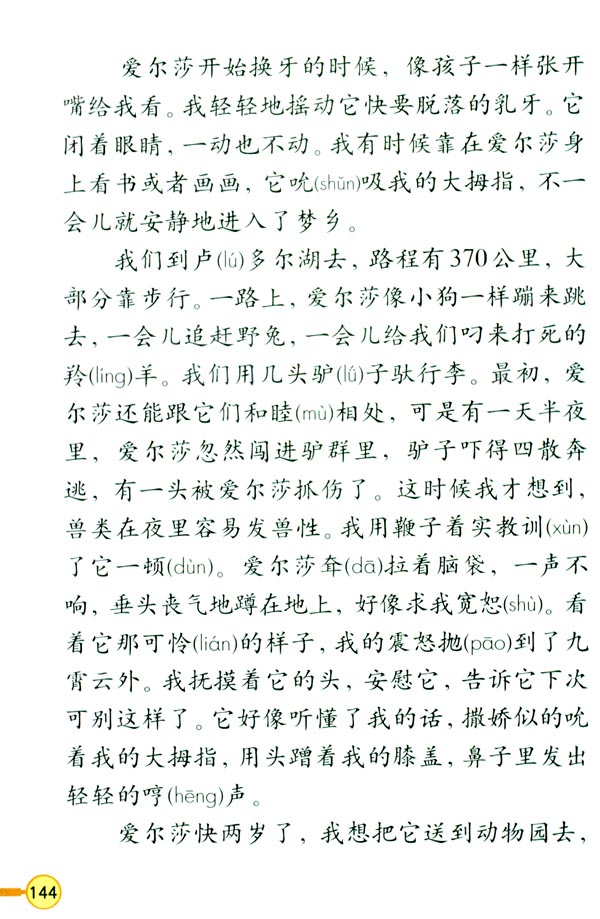 爱尔莎开始换牙的时候，像孩子一样张开
嘴给我看。我轻轻地摇动它快要脱落的乳牙。它
闭着眼睛，一动也不动。我有时候靠在爱尔莎身
上看书或者画画，它吮(shǔn)吸我的大拇指，不一
会儿就安静地进入了梦乡。
我们到卢(lú)多尔湖去，路程有370公里，大
部分靠步行。一路上，爱尔莎像小狗一样蹦来跳
去，一会儿追赶野兔，一会儿给我们叼来打死的
羚(líng)羊。我们用几头驴(lǘ)子驮行李。最初，爱
尔莎还能跟它们和睦(mù)相处，可是有一天半夜
里，爱尔莎忽然闯进驴群里，驴子吓得四散奔
逃，有一头被爱尔莎抓伤了。这时候我才想到，
兽类在夜里容易发兽性。我用鞭子着实教训(xùn)
了它一顿(dùn)。爱尔莎耷(dā)拉着脑袋，一声不
响，垂头丧气地蹲在地上，好像求我宽恕(shù)。看
着它那可怜(lián)的样子，我的震怒抛(pāo)到了九
霄云外。我抚摸着它的头，安慰它，告诉它下次
可别这样了。它好像听懂了我的话，撒娇似的吮
着我的大拇指，用头蹭着我的膝盖，鼻子里发出
轻轻的哼(hēng)声。
爱尔莎快两岁了，我想把它送到动物园去，
144